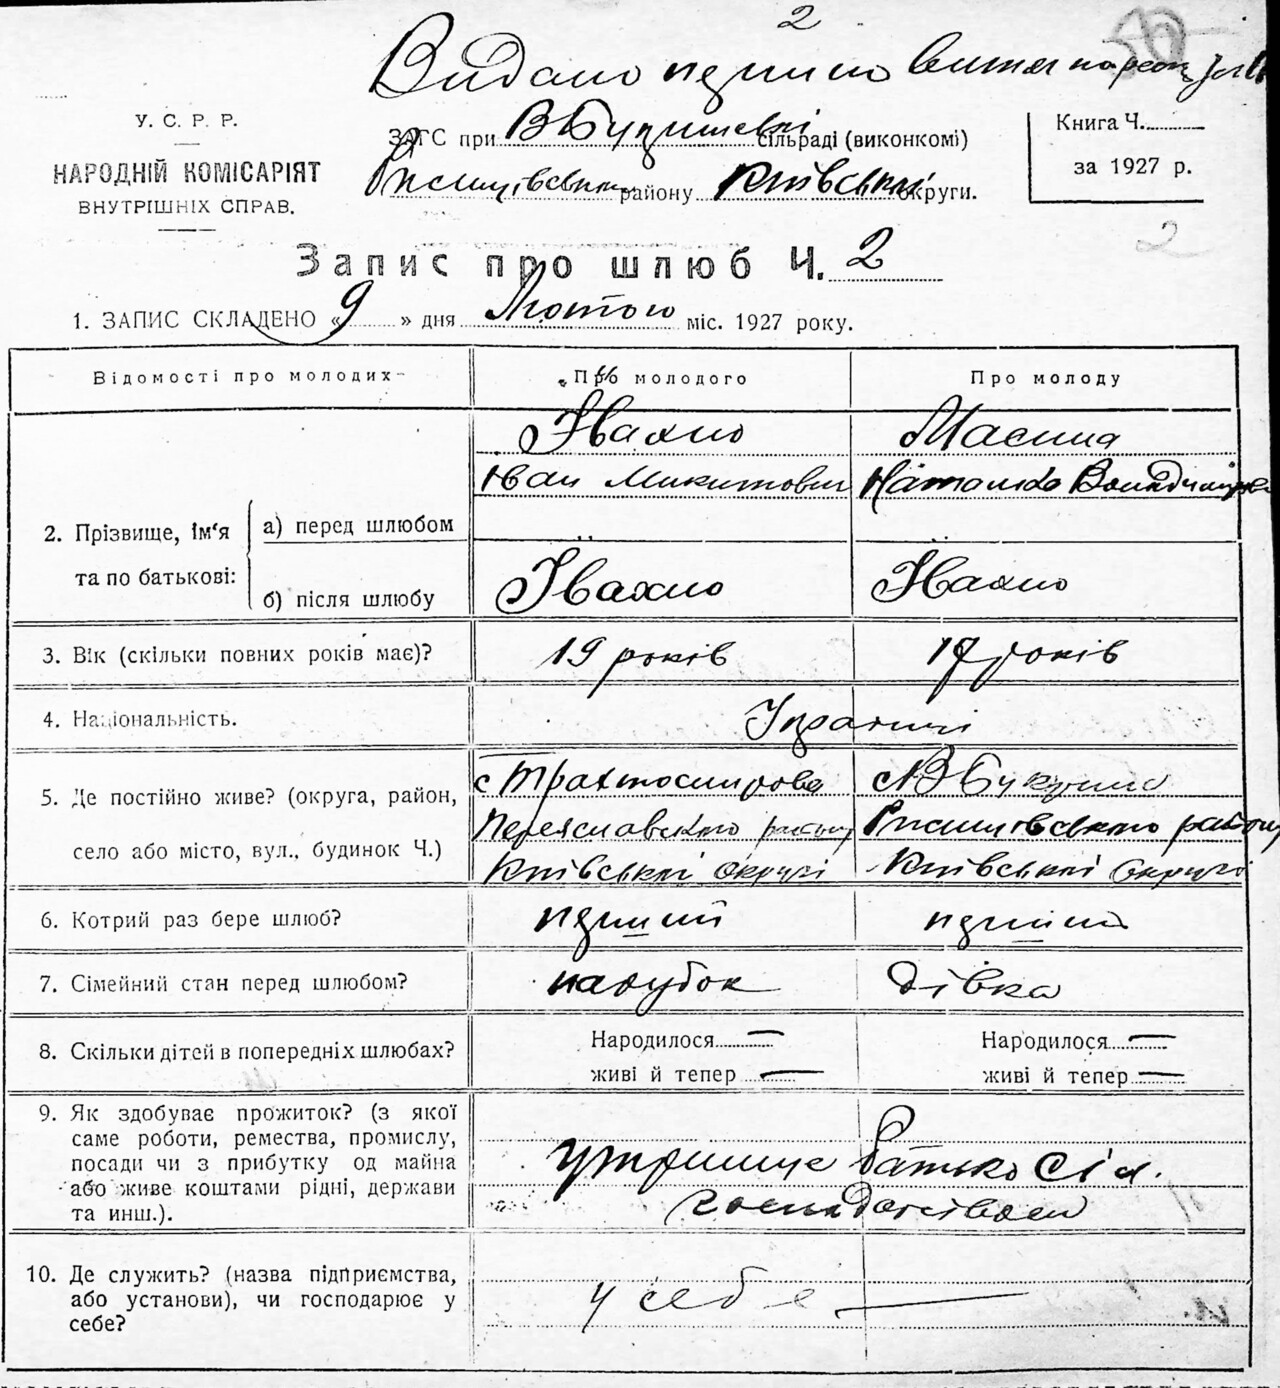 2
Видано першо витяг
У. С. Р. Р.
НАРОДНІЙ КОМІСАРІЯТ
ВНУТРІШНІХ СПРАВ.
ЗАГС при В Букринські сільраді (виконкомі)
Ржищівського району Київської округи.
Книга Ч.
за 1927 р.
2
Запис про шлюб Ч. 2
1. ЗАПИС СКЛАДЕНО « 9 » дня Лютого міс. 1927 року.
Відомості про молодих
Про молодого
Про молоду
2. Прізвище, ім‘я та по батькові:
а) перед шлюбом
Івахно
Іван Микитович
Масина
Наталка Володимірівна
б) після шлюбу
Івахно
Івахно
3. Вік (скільки повних років має)?
19 років
17 років
4. Національність.
Українці
5. Де постійно живе? (округа, район,
село або місто, вул., будинок Ч.)
с Трахтомирова
Переяславського району
Київської округи
с В Букрина
Ржищівського району
Київської Округи
6. Котрий раз бере шлюб?
перший
перший
7. Сімейний стан перед шлюбом?
парубок
дівка
8. Скільки дітей в попередніх шлюбах?
Народилося —
живі й тепер —
Народилося —
живі й тепер —
9. Як здобуває прожиток? (з якої
саме роботи, ремества, промислу,
посади чи з прибутку од майна
або живе коштами рідні, держави
та инш.).
утримує батько сіл.
господарством
10. Де служить? (назва підприємства,
або установи), чи господарює у
себе?
у себе —